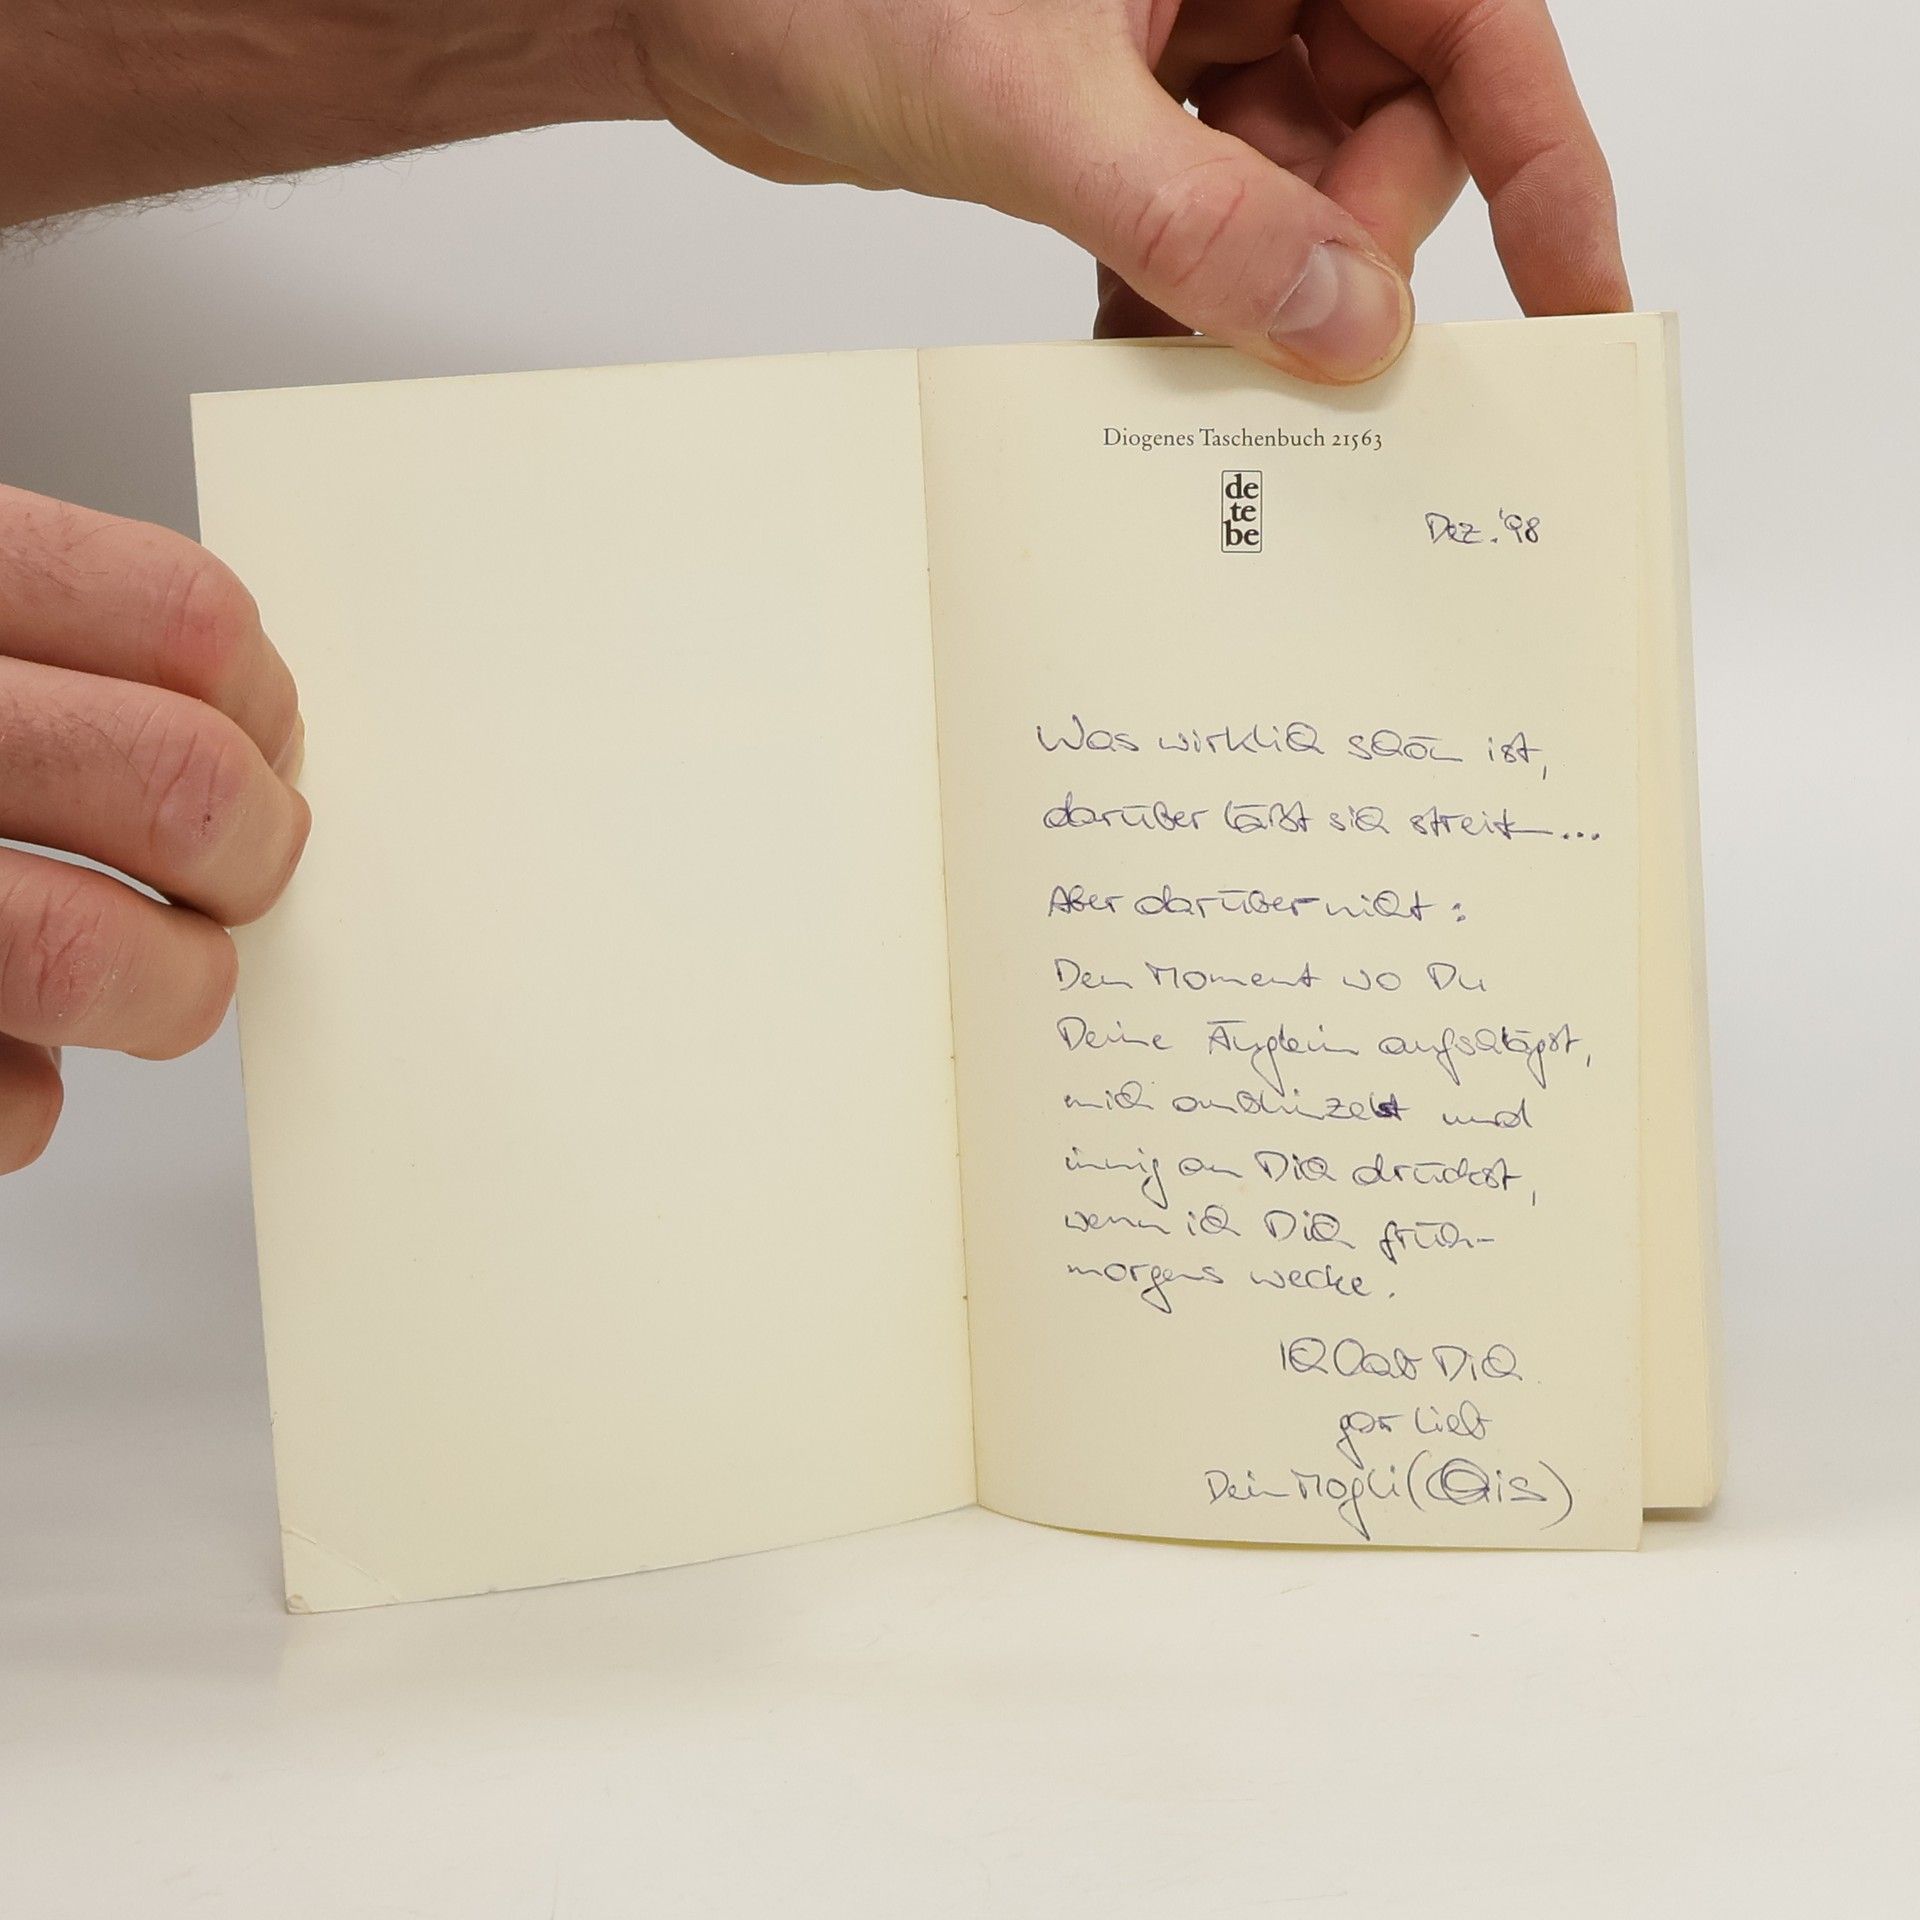 Diogenes Taschenbuch 21563
de
te
be
Dez. '98
Was wirklich schön ist,
darüber läßt sich streiten...
Aber darüber nicht:
Den Moment wo Du
Deine Äuglein aufschlägst,
mich anblinzelst und
innig an Dich drückst,
wenn ich Dich früh-
morgens wecke.
Ich hab Dich
gar lieb
Dein Mogli (Chis)